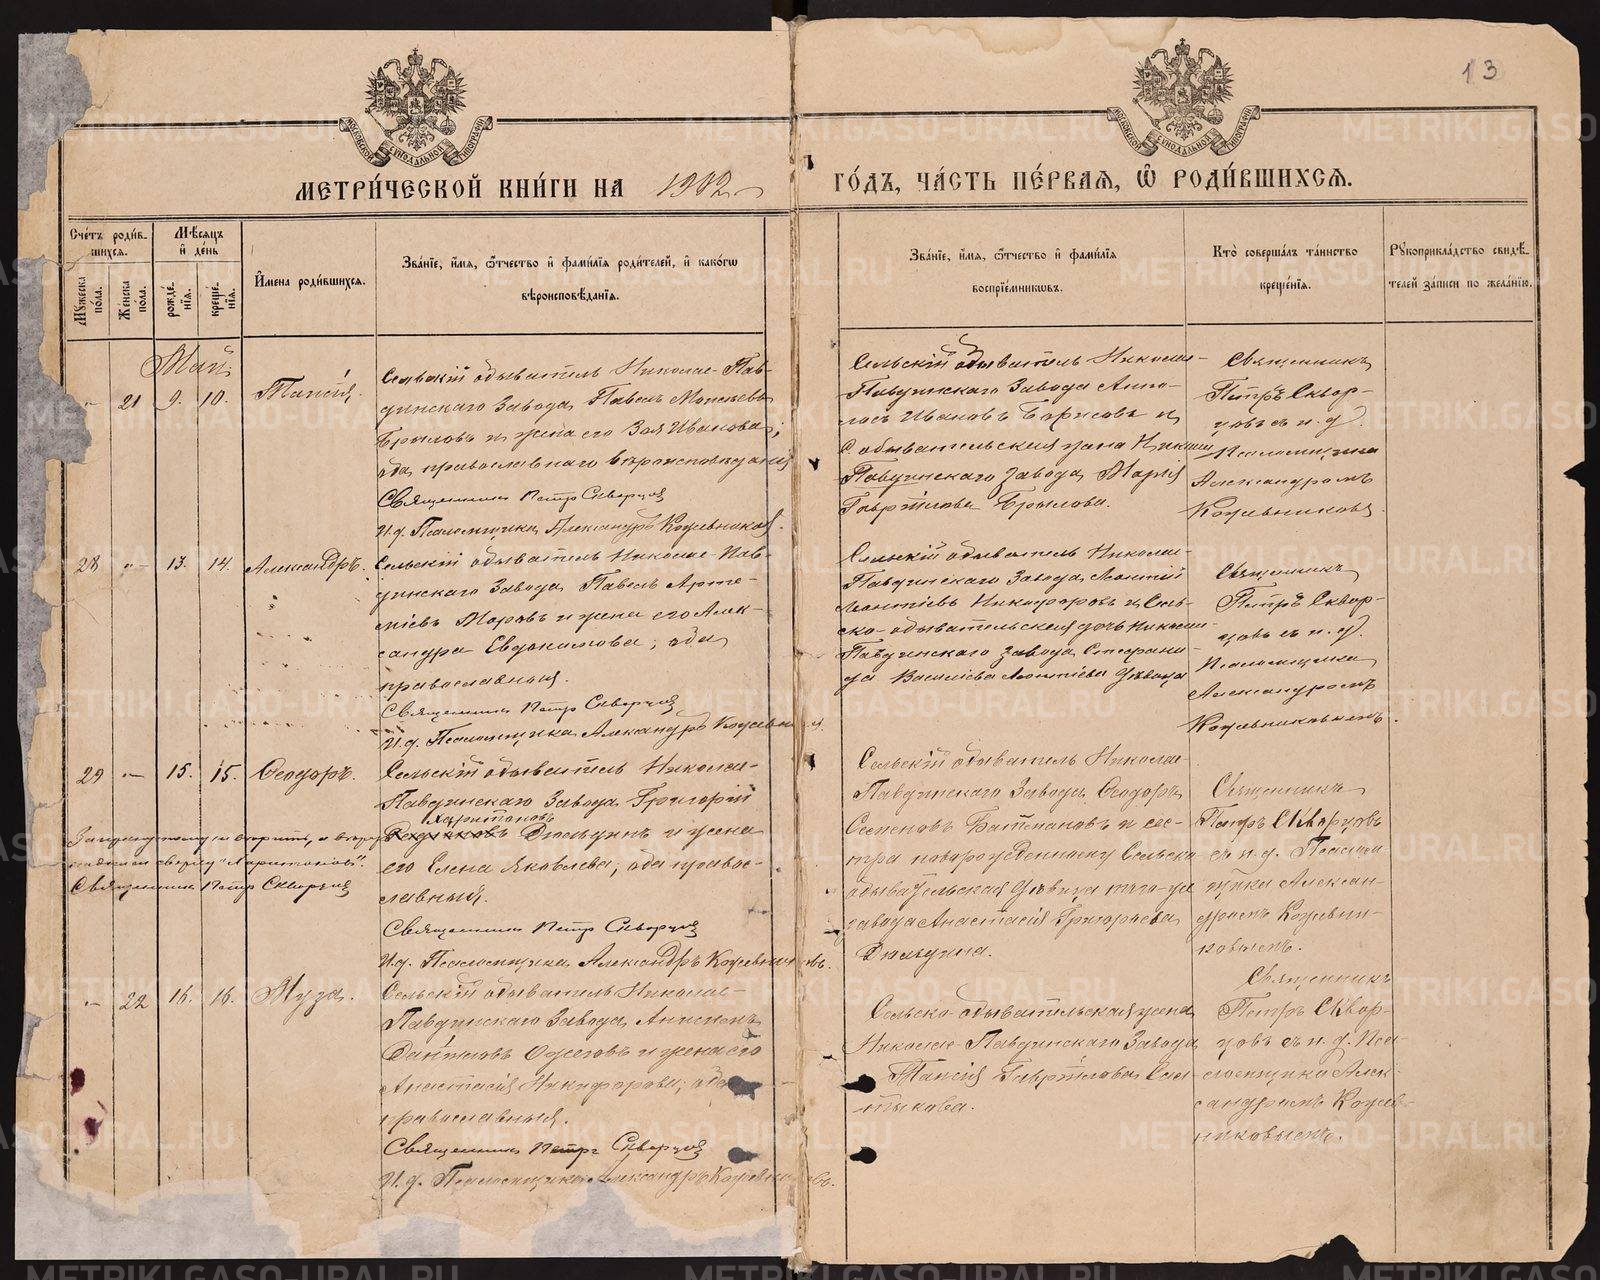 13
МЕТРИ́ЧЕСКОЙ КНИ́ГИ НА 1902 ГО́ДЪ, ЧА́СТЬ ПЕ́РВАЯ, Ѽ РОДИ́ВШИХСЯ.
Сче́тъ роди́вшихся.
Мѣ́сяцъ и҆ де́нь
Мꙋ́жеска по́ла.
Же́нска по́ла.
рожде́нїя.
креще́нїя.
И҆мена роди́вшихся.
Зва́нїе, и҆́мя, ѻ҆́тчество и҆ фами́лїя роди́телей, и҆ како́гѡ
вѣроисповѣ́данїя.
Зва́нїе, и҆́мя, ѻ҆́тчество и҆ фами́лїя
воспрїе́мниковъ.
Кто̀ соверша́лъ та́инство
креще́нїя.
Рꙋкоприкла́дство свидѣ́-
телей за́писи по жела́нїю.
Май
21 9. 10. Таисія,
Сельскій обыватель Николае-Пав-
динскаго Завода, Павелъ Моисеевъ
Брыловъ и жена его Зоя Иванова,
оба православнаго вѣроисповѣданія
Священникъ Петр Скворцов
И.д. Псаломщика, Александръ Кожевниковъ.
Сельскій обыватель Николае-
Павдинскаго Завода Аппо-
лосъ Ивановъ Борисовъ и
обывательская жена Николае
Павдинскаго Завода, Марія
Гаврилова Брылова.
Священникъ
Петръ Сквор-
цовъ съ и. д.
Псаломщика
Александромъ
Кожевниковы
28 13. 14. Александръ.
Сельскій обыватель Николае-Пав-
динскаго Завода, Павелъ Арте-
міевъ Моровъ и жена его Алек-
сандра Евдокимова, оба
православныя.
Священникъ Петр Скворцов
И.д. Псаломщика, Александръ Кожевников
Сельскій обыватель Николае-
Павдинскаго Завода, Леонтій
Леонтіевъ Никифоровъ и Сель-
ско-обывательская дочь Николае
Павдинскаго Завода Стефани-
да Васильева Леонтіева дѣвица
Священникъ
Петръ Сквор-
цовъ съ и. д.
Псаломщика
Александромъ
Кожевниковымъ.
29 15. 15. Ѳеодоръ.
Сельскій обыватель Николае-
Павдинскаго Завода Григорій
Харитоновъ
Дюльдинъ и жена
его Елена Яковлева, оба правос-
лавныя.
Священникъ Петр Скворцов
И.д. Псаломщика, Александръ Кожевниковъ.
Зачеркнутому не вѣрить, а вѣрить
надписи сверху "Харитоновъ".
Священникъ Петр Скворцов
Сельскій обыватель Николае-
Павдинскаго Завода Ѳеодоръ
Семеновъ Батмановъ и сес-
тра новорожденному Сельско
обывательская дѣвица того-же
завода Анастасія Григорьева
Дюльдина.
Священникъ
Петръ Скворцовъ
съ и. д. Псалом-
щика Алексан-
дромъ Кожевни-
ковымъ.
22 16. 16. Муза.
Сельскій обыватель Николае-
Павдинскаго Завода,
Даниловъ и жена его
Анастасія Никифорова, оба
православныя.
Священникъ Петръ Скворцов
И.д. Псаломщика Александръ Кожевниковъ.
Сельско-обывательская жена
Николае-Павдинскаго Завода
Таисія Гаврилова Сал-
тыкова.
Священникъ
Петръ Сквор-
цовъ съ и. д. Пса-
ломщика Алек-
сандромъ Кожев-
никовымъ.
METRIKI.GASO-URAL.RU